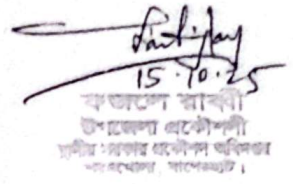 15.10.25
ফজলে রাব্বী
উপজেলা প্রকৌশলী
স্থানীয় সরকার প্রকৌশল অধিদপ্তর
বাগেরহাট।